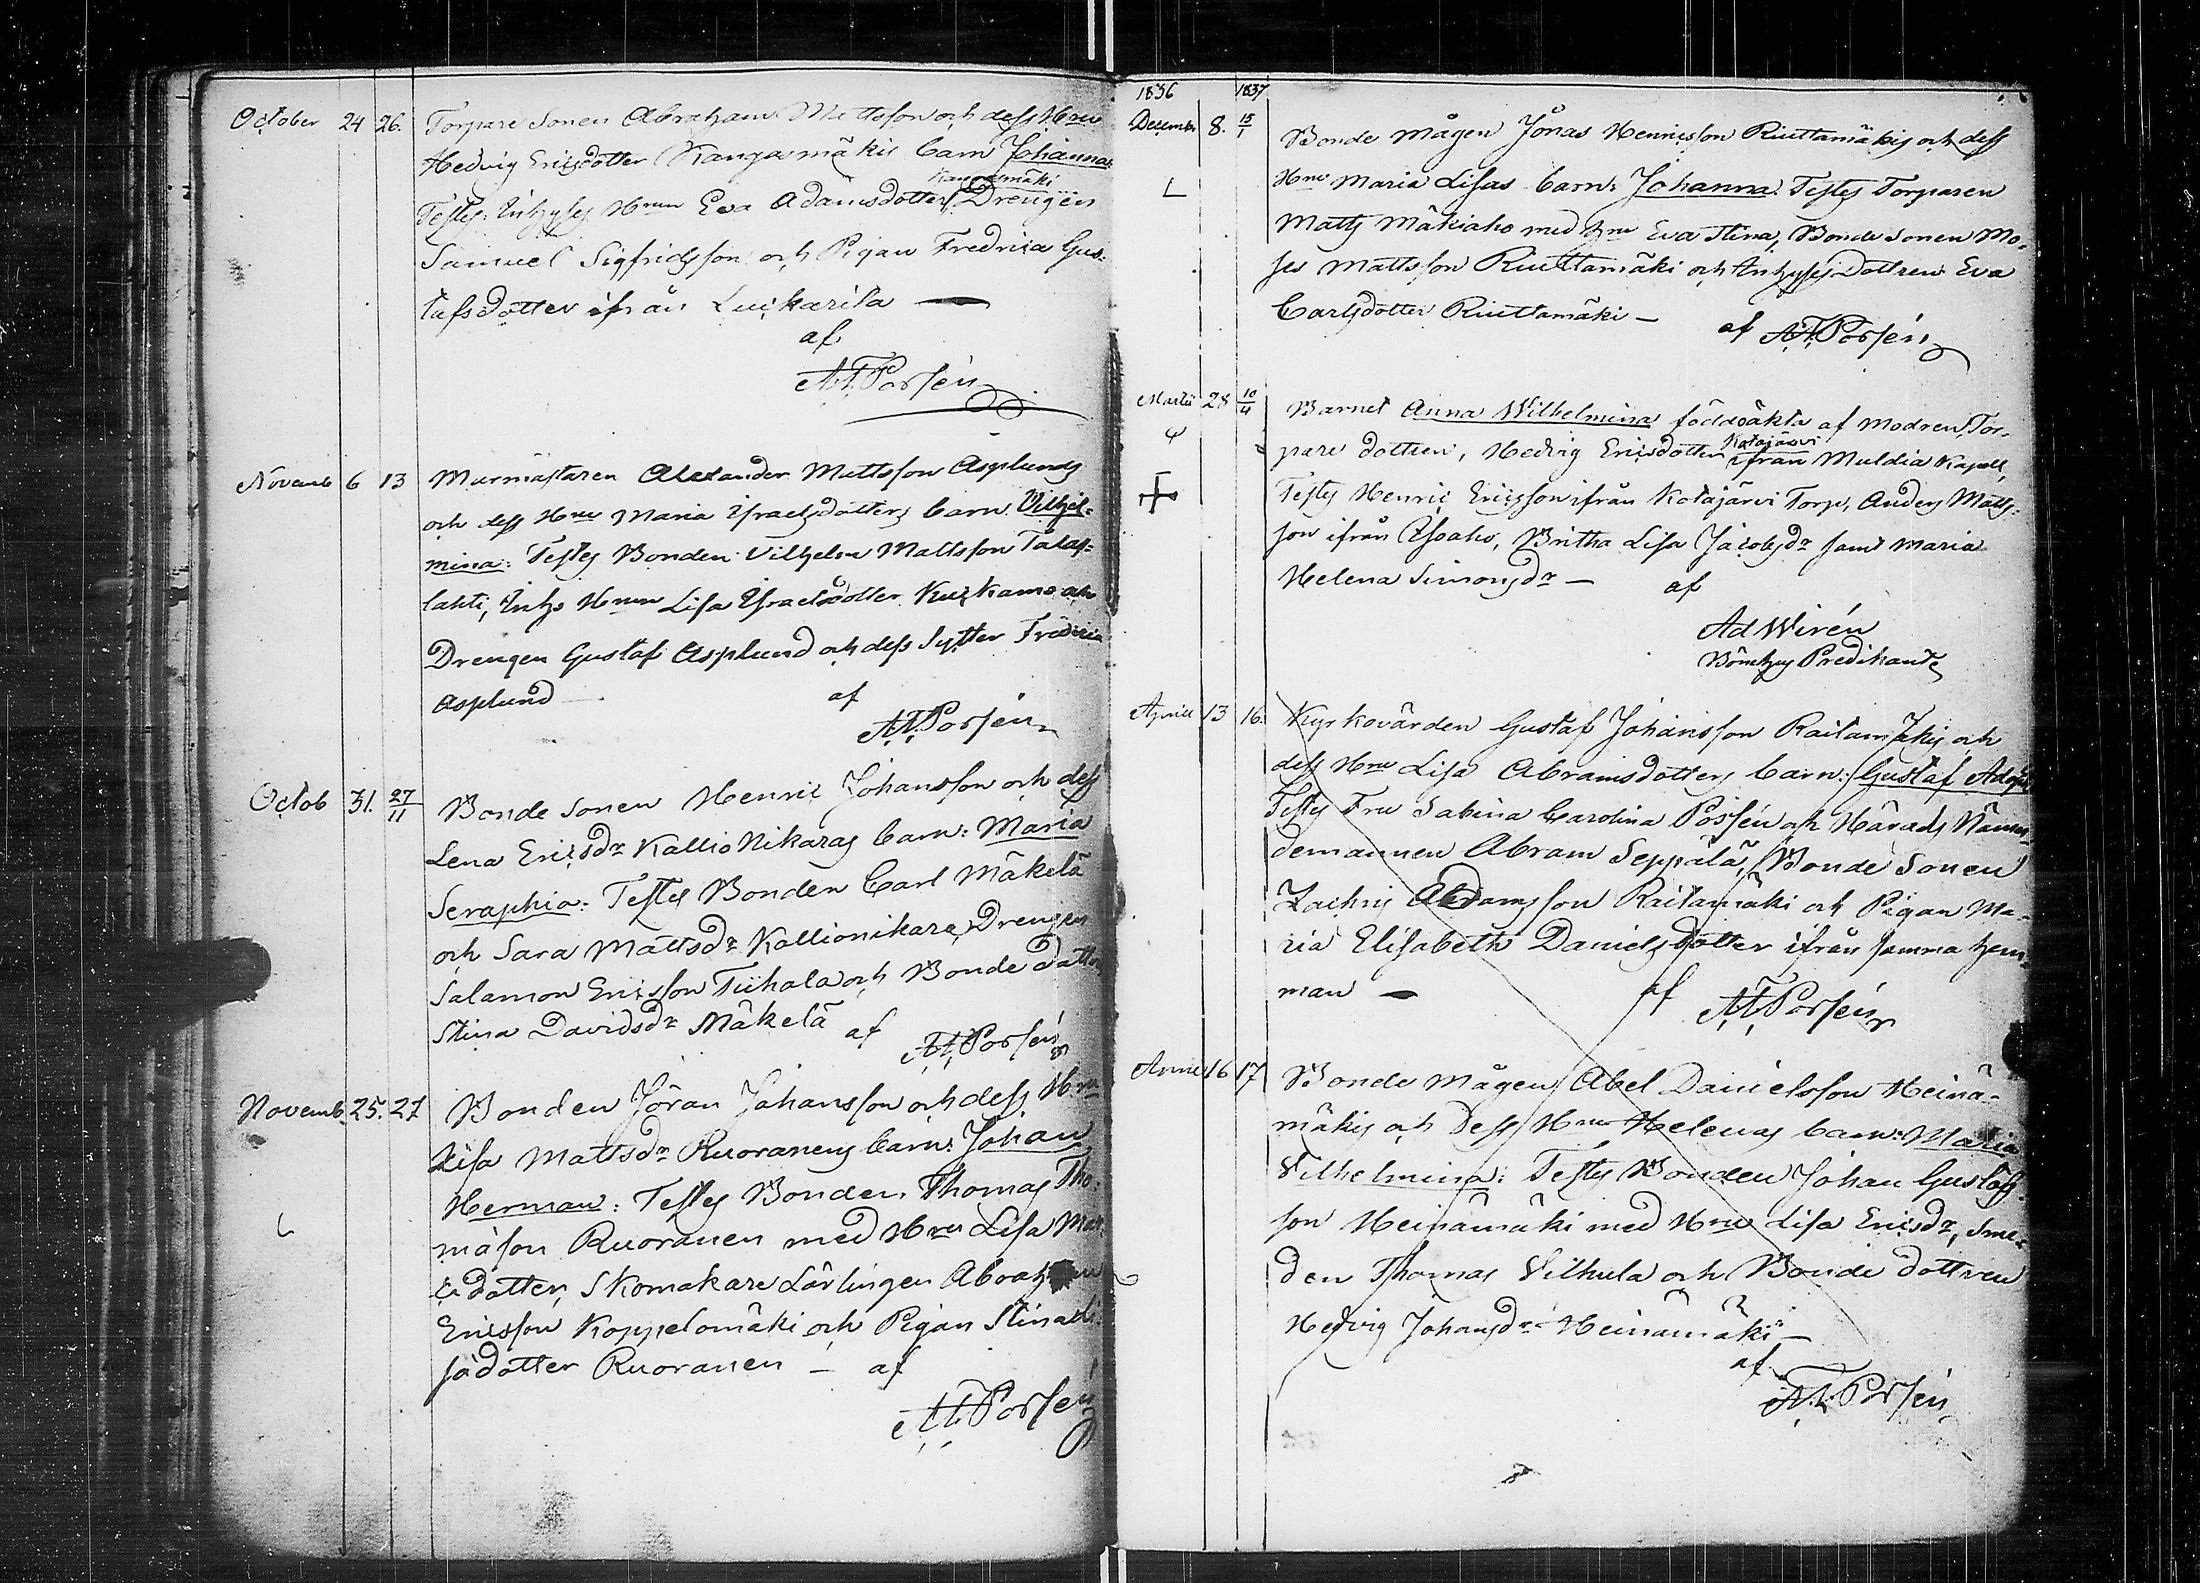 October 24 26. Torpare Sonen Abraham Mattsson och dess Hru
Hedvig Ericsdotter Kangasmäkis barn Johanna:
Kangasmäki
Testes: Inhyses Hrun Eva Adamsdotter, Drengen
Samuel Sigfridsson och Pigan Fredrica Gus-
tafsdotter ifrån
af
A.T. Porsén
Novemb 6 13 Murmästaren Alexander Mattsson Asplunds
och dess Hru Maria Israelsdotters barn Vilhel-
mina: Testes Bonden Vilhelm Mattsson Talas-
lahti, Inhs Hrun Lisa Israelsdotter och
Drengen Gustaf Asplund och dess Syster Fredrica
Asplund af
A.T. Porsén
Octob 31. 27/11 Bonde Sonen Henric Johansson och dess
Lena Ericsdr Kallio Nikaras barn: Maria
Seraphia: Testes Bonden Carl Mäkelä
och Sara Mattsdr Kallionikara, Drengen
Salamon Ericsson Tiihala och Bonde dottr
Stina Davidsdr Mäkelä af A.T. Porsén
Novemb. 25. 27 Bonden Jöran Johansson och dess Hru
Lisa Mattsdr Ruoranens barn: Johan
Herman: Testes Bonden Thomas Tho-
masson Ruoranen med Hru Lisa Mat
L dotter, Skomakare Lärlingen Abraham
Ericsson Koppelomäki och Pigan Stina
dotter Ruoranen — af
A.T. Porsén
1836 1837
Decembr 8. 15/1 Bonde Mågen Jonas Henricsson Riuttamäkis och dess
L Hru Maria Lisas barn: Johanna: Testes Torparen
Matts Mäkiaho med Hru Eva Stina, Bonde Sonen Mo-
ses Mattsson Riuttamäki och Inhyses Dottren Eva
Carlsdotter Riuttamäki — af A.T. Porsén
Martii 28 10/4 Barnet Anna Wilhelmina född oäkta af modren, Tor-
Kotajärvi
pare dottren, Hedvig Ericsdotter ifrån Muldia Kapell,
Testes Henric Ericsson ifrån Kotajärvi Torp, Anders Matts-
son ifrån Ahoaho, Britha Lisa Jacobsdr samt Maria
Helena Simonsdr — af
Ad Wirén
Bönehus Predikant
April 13 16. Kyrkovärden Gustaf Johansson Raitamäkis och
dess Hru Lisa Abramsdotters barn: Gustaf Adolf
Testes Fru Sabina Carolina Porsén och Härads Nämn-
demannen Abram Seppälä, Bonde Sonen
Zachris Abramsson Raitamäki och Pigan Ma-
ria Elisabeth Danielsdotter ifrån samma hem-
man — af A.T. Porsén
April 16 17 Bonde Mågen Abel Danielsson Heinä-
mäkis och dess Hru Helenas barn: Maria
Vilhelmina: Testes Bonden Johan Gustafs-
son Heinämäki med Hru Lisa Ericsdr, Sme-
den Thomas Vilhula och Bonde dottren
Hedvig Johansdr Heinämäki —
af
A.T. Porsén